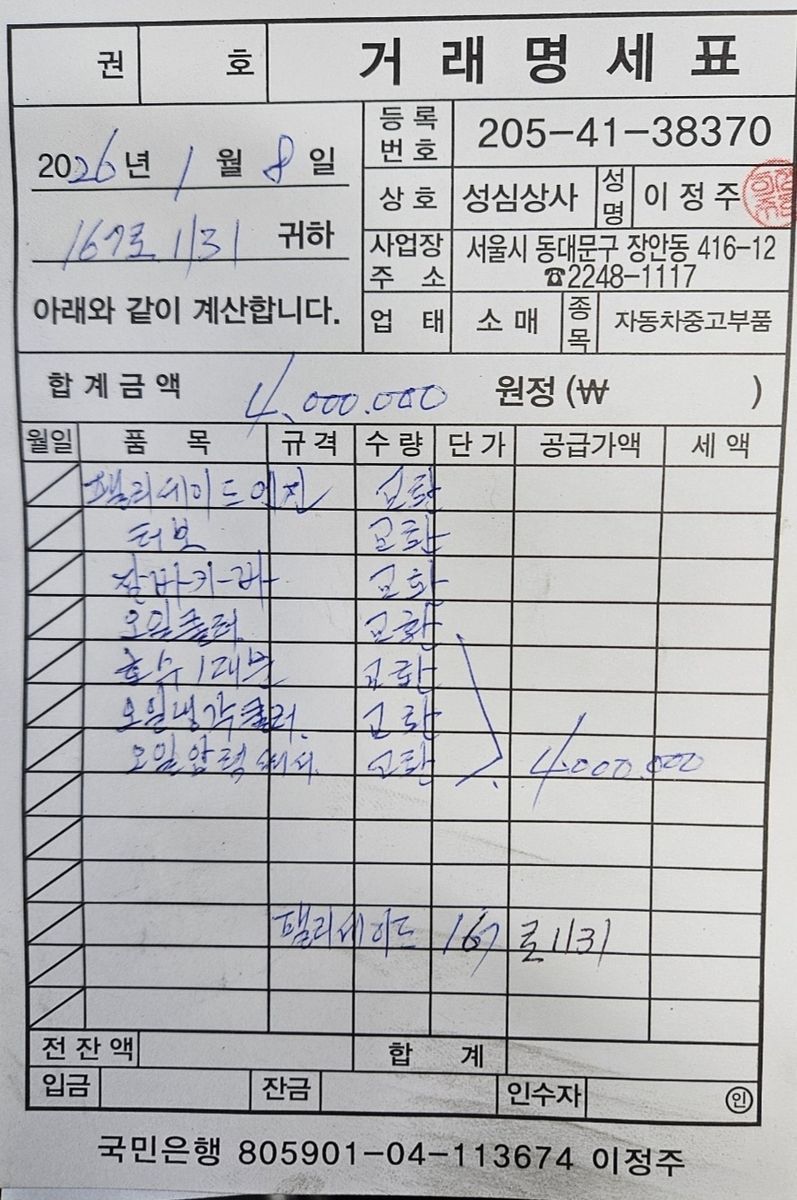 권 호 거래명세표
등록번호 205-41-38370
2026년 1월 8일
상호 성심상사 성명 이정주
167로 1131 귀하
사업장주소 서울시 동대문구 장안동 416-12
☎2248-1117
아래와 같이 계산합니다.
업태 소매 종목 자동차중고부품
합계금액 4,000.000 원정 (₩ )
월일 품목 규격 수량 단가 공급가액 세액
팰리세이드 엔진 교환
터보 교환
잠바카바 교환
오일쿨러 교환
호수 1대분 교환
오일냉각쿨러. 교환
오일압력 센서. 교환 4.000.000
팰리세이드 167로1131
전잔액 합계
입금 잔금 인수자 ㉑
국민은행 805901-04-113674 이정주